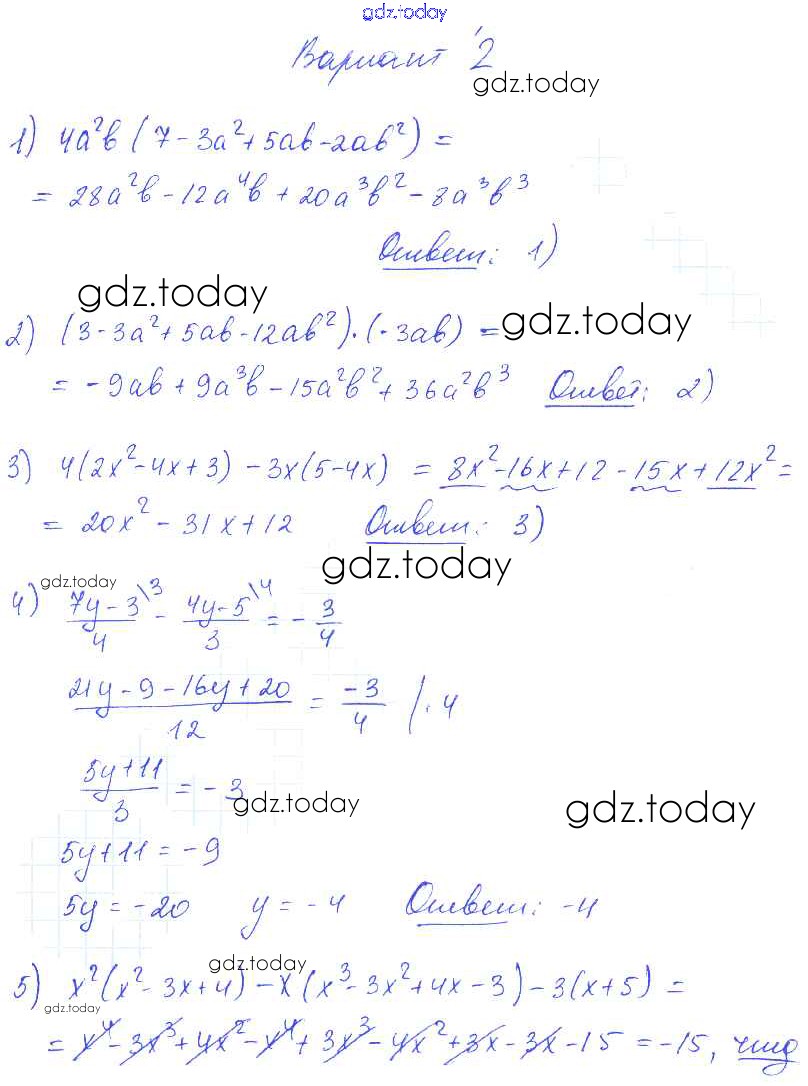 gdz.today
Вариант 2
gdz.today
1) 4a²b (7 - 3a² + 5ab - 2ab²) =
= 28a²b - 12a⁴b + 20a³b² - 8a³b³
Ответ: 1)
gdz.today
2) (3 - 3a² + 5ab - 12ab²) · (-3ab) = gdz.today
= -9ab + 9a³b - 15a²b² + 36a²b³ Ответ: 2)
3) 4(2x² - 4x + 3) - 3x(5 - 4x) = 8x² - 16x + 12 - 15x + 12x² =
= 20x² - 31x + 12 Ответ: 3)
gdz.today
gdz.today
4) (7y - 3)/4 \3 - (4y - 5)/3 \4 = - 3/4
(21y - 9 - 16y + 20)/12 = -3/4 | · 4
(5y + 11)/3 = - 3
gdz.today gdz.today
5y + 11 = -9
5y = -20 y = -4 Ответ: -4
gdz.today
5) x²(x² - 3x + 4) - x(x³ - 3x² + 4x - 3) - 3(x + 5) =
gdz.today
= x⁴ - 3x³ + 4x² - x⁴ + 3x³ - 4x² + 3x - 3x - 15 = -15, чтд